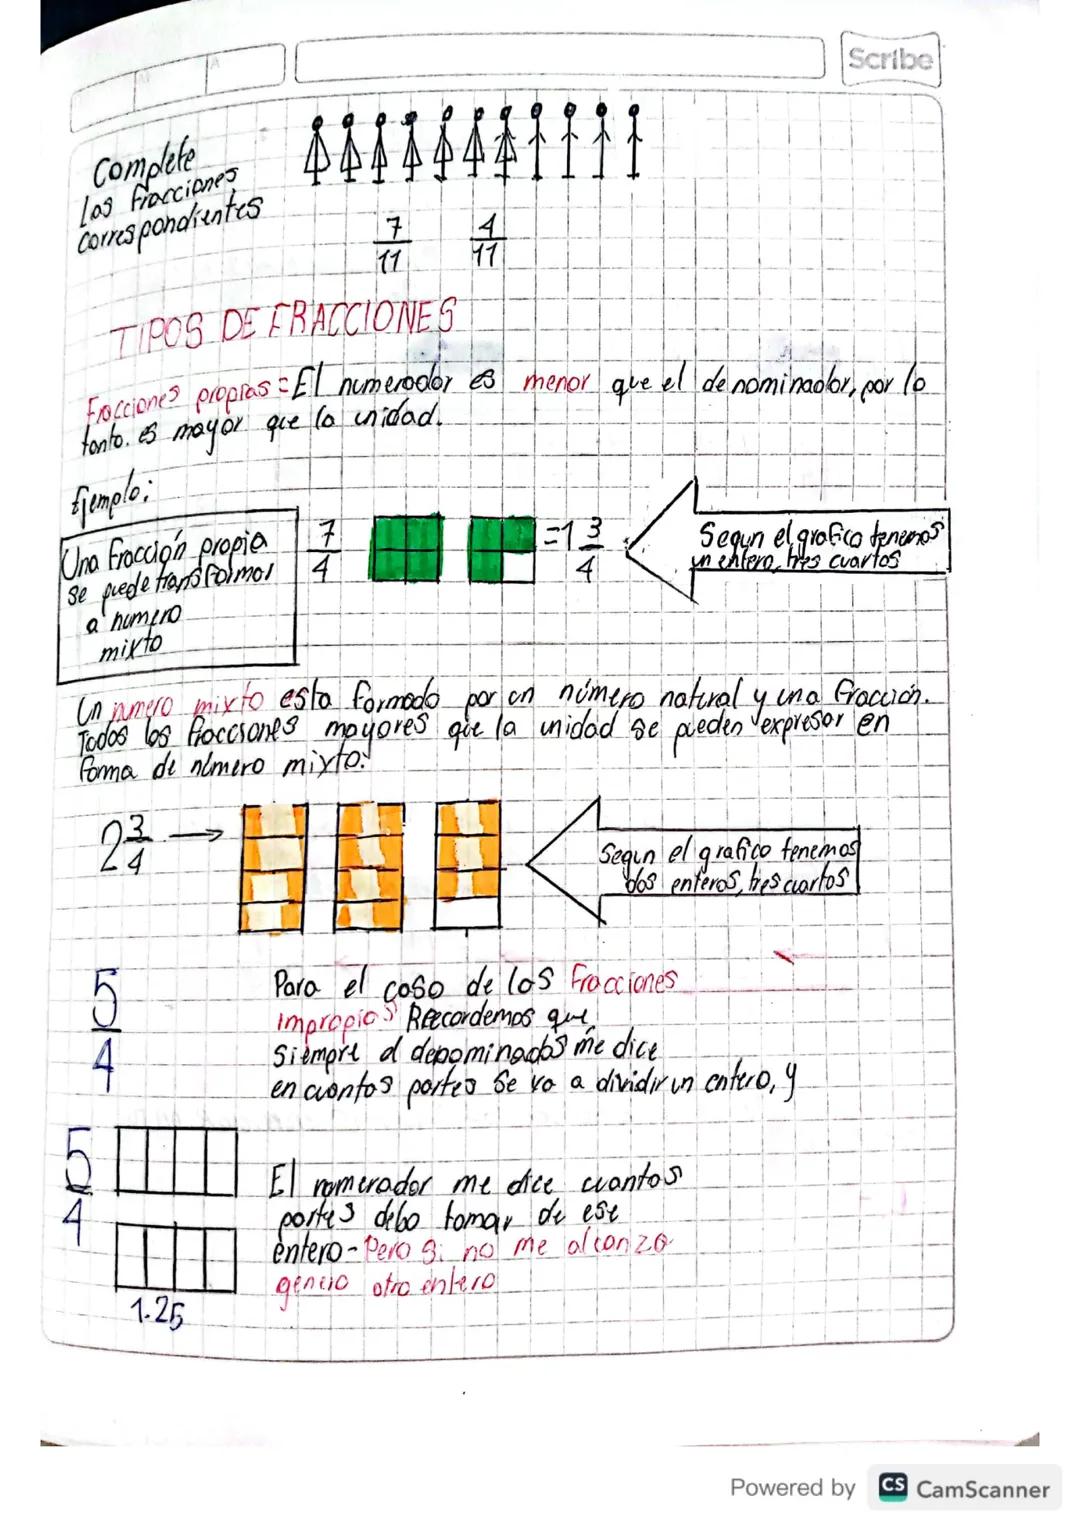 Scribe
Complete
las fracciones
correspondientes
7/11 4/11
TIPOS DE FRACCIONES
Fracciones propias = El numerador es menor que el denominador, por lo
tanto. es mayor que la unidad.
Ejemplo:
Una fracción propia
se puede transformar
a numero
mixto
7/4 = 1 3/4
Segun el grafico tenemos
un entero, tres cuartos
Un numero mixto esta formado por un número natural y una fracción.
Todos las fracciones mayores que la unidad se pueden expresar en
forma de número mixto.
2 3/4 →
Segun el grafico tenemos
dos enteros, tres cuartos
5/4
Para el caso de las Fracciones
Impropias Recordemos que
Siempre el denominados me dice
en cuantos partes se va a dividir un entero, y
5/4
El numerador me dice cuantos
partes debo tomar de ese
entero - Pero si no me alcanza
genero otro entero
1.25
Powered by CS CamScanner